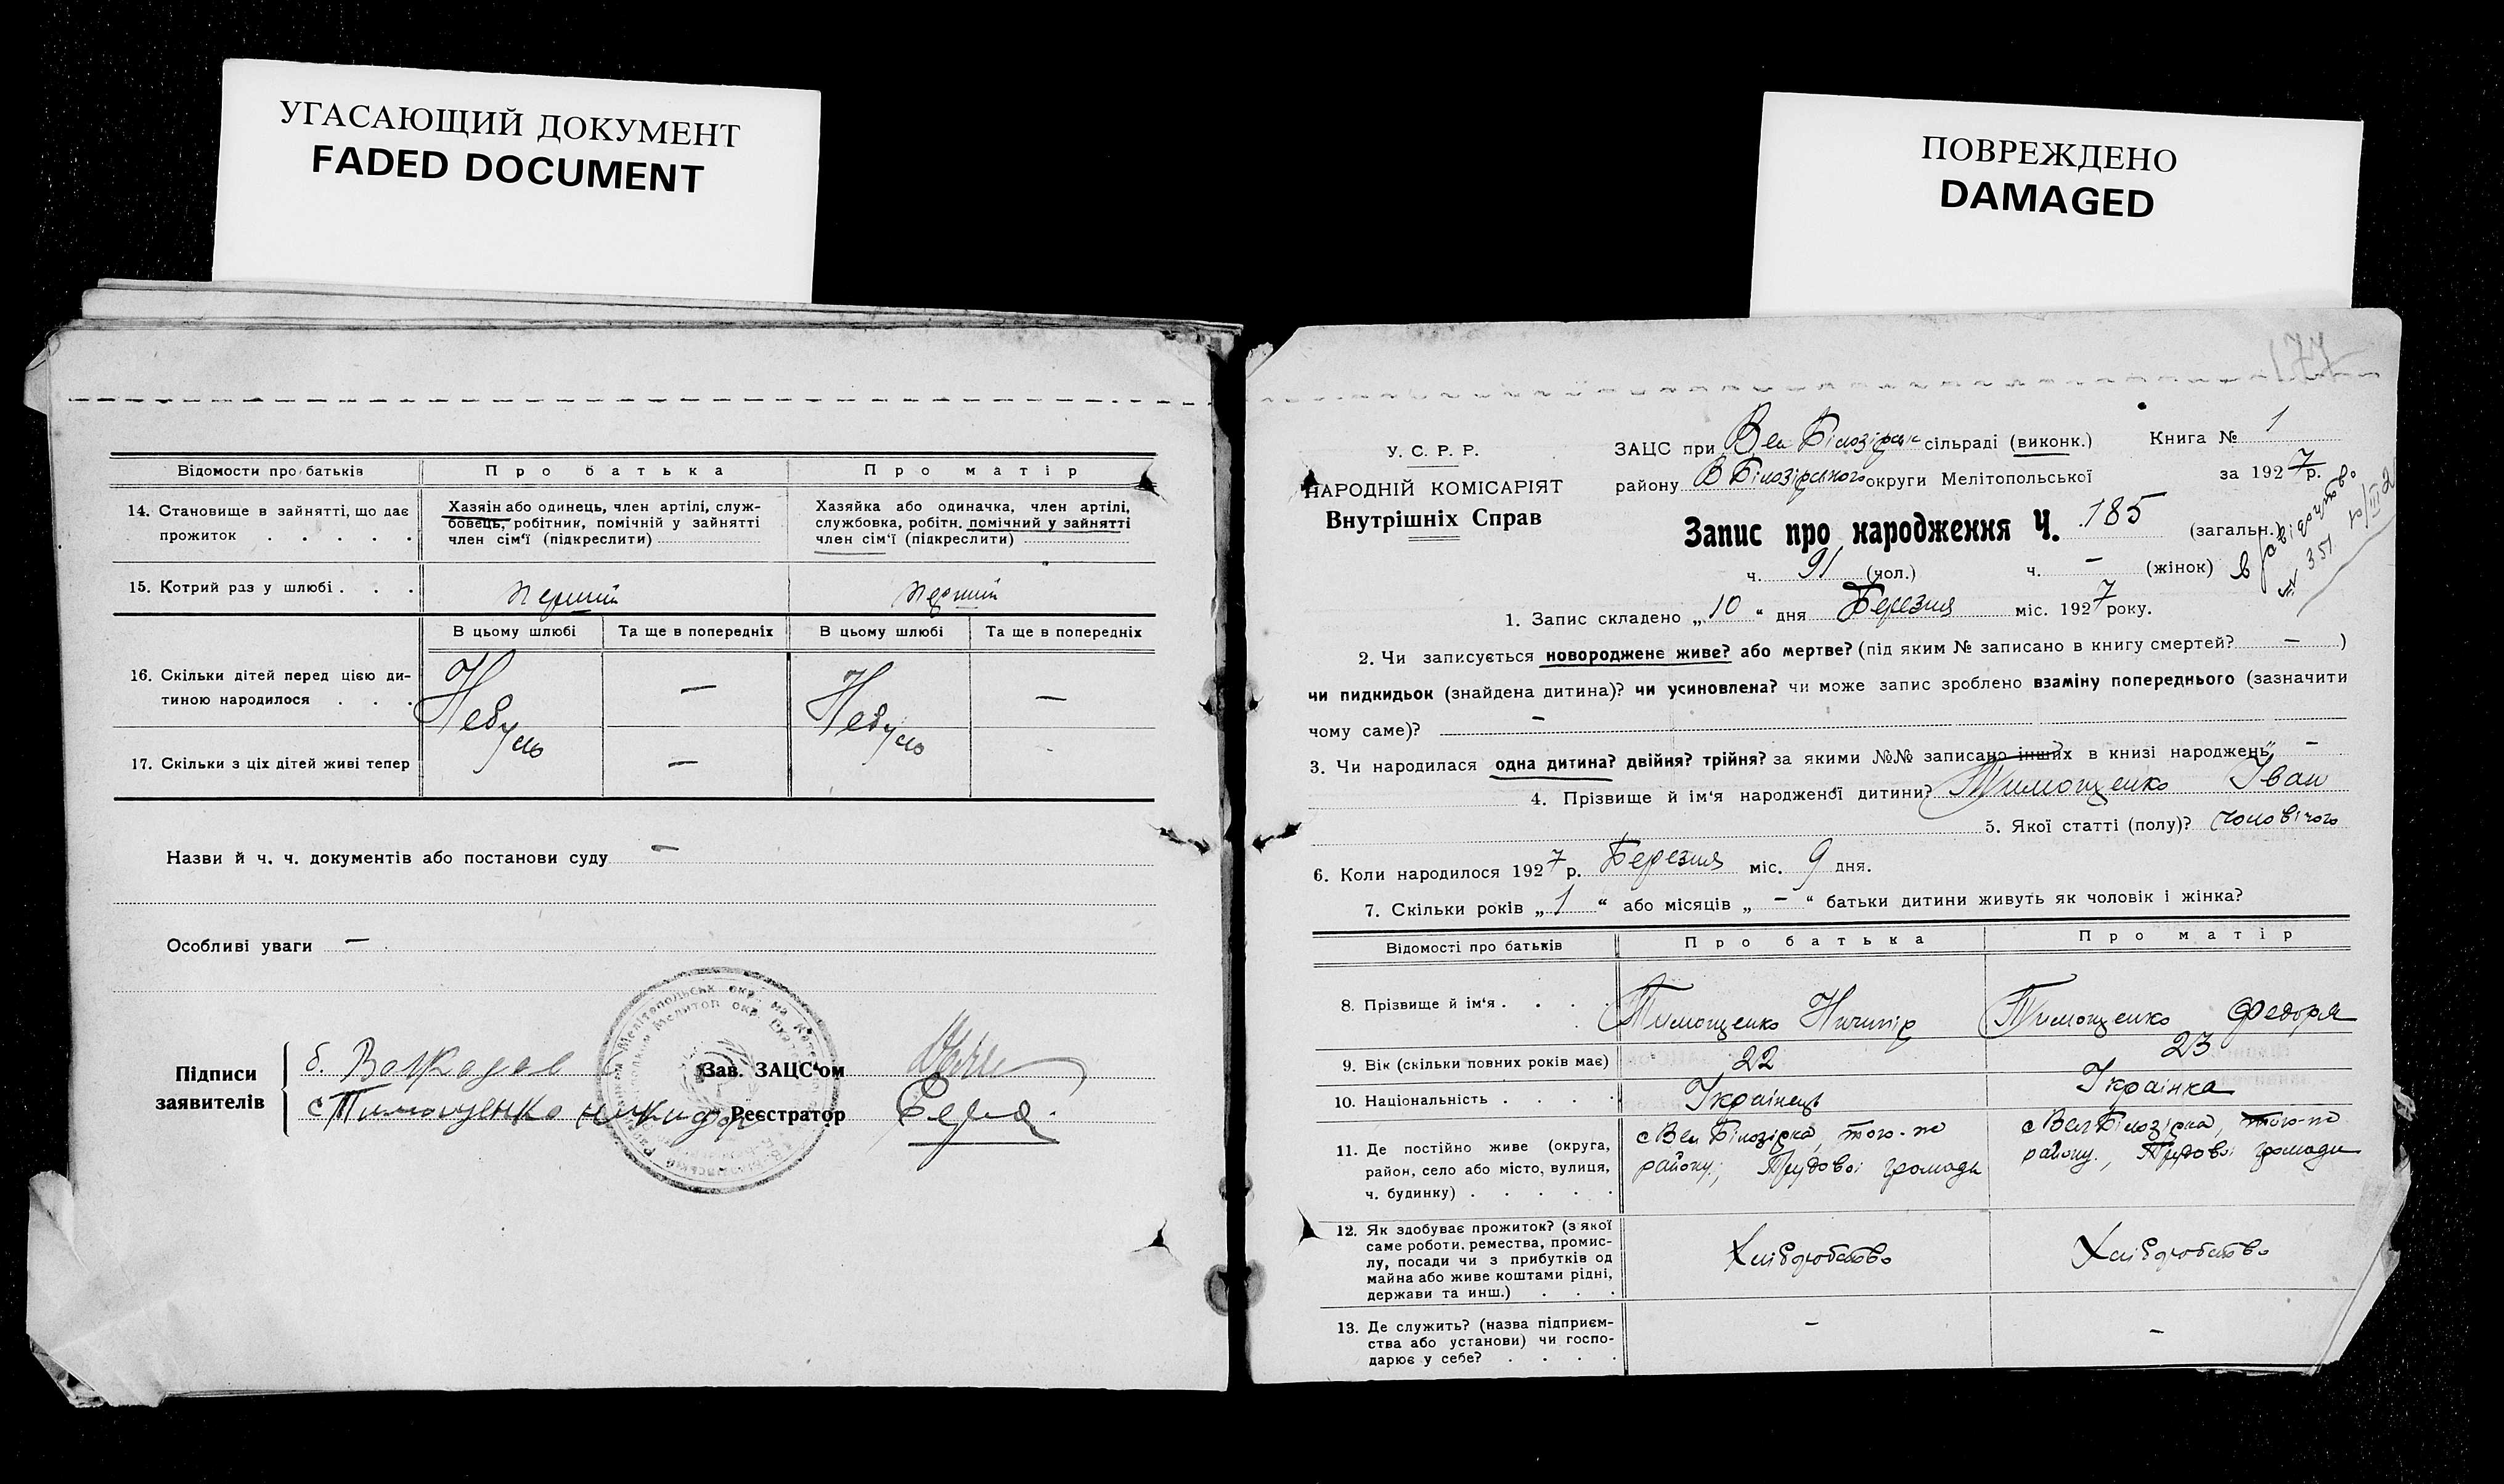 УГАСАЮЩИЙ ДОКУМЕНТ
FADED DOCUMENT
ПОВРЕЖДЕНО
DAMAGED
Відомости про батьків
Про батька
Про матір
14. Становище в зайнятті, що дає прожиток . . . . .
Хазяін або одинець, член артілі, служ-
бовець, робітник, помічній у зайнятті
член сім'ї (підкреслити)
Хазяйка або одиначка, член артілі,
службовка, робітн. помічний у зайнятті
член сім'ї (підкреслити)
15. Котрий раз у шлюбі . . .
перший
перший
В цьому шлюбі
Та ще в попередніх
В цьому шлюбі
Та ще в попередніх
16. Скільки дітей перед цією ди-
тиною народилося . . .
Небуло
—
Небуло
—
17. Скільки з ціх дітей живі тепер
—
Назви й ч. ч. документів або постанови суду —
Особливі уваги —
Підписи
заявителів
б.
Зав. ЗАЦС'ом
с Тимощенко никифор
Реєстратор
177
У. С. Р. Р.
НАРОДНІЙ КОМІСАРІЯТ
Внутрішніх Справ
ЗАЦС при Вел Білозірськ сільраді (виконк.)
Книга № 1
району В Білозірського округи Мелітопольської
за 1927 р.
Запис про народження Ч. 185 (загальн.)
ч. 91 (чол.) ч. — (жінок)
№ 351
1. Запис складено „ 10 “ дня Березня міс. 1927 року.
2. Чи записується новороджене живе? або мертве? (під яким № записано в книгу смертей? — )
чи пидкидьок (знайдена дитина)? чи усиновлена? чи може запис зроблено взаміну попереднього (зазначити
чому саме)? —
3. Чи народилася одна дитина? двійня? трійня? за якими №№ записано інших в книзі народжень —
4. Прізвище й ім'я народженої дитини? Тимощенко Іван
5. Якої статті (полу)? чоловічого
6. Коли народилося 1927 р. Березня міс. 9 дня.
7. Скільки років „ 1 “ або місяців „ — “ батьки дитини живуть як чоловік і жінка?
Відомості про батьків
Про батька
Про матір
8. Прізвище й ім'я . . . .
Тимощенко Ничипір
Тимощенко Федора
9. Вік (скільки повних років має)
22
23
10. Національність . . . .
Українець
Українка
11. Де постійно живе (округа,
район, село або місто, вулиця,
ч. будинку) . . . . .
с Вел Білозірка, того-ж
району, Трудової громади
с Вел Білозірка, того-ж
району, Трудової громади
12. Як здобуває прожиток? (з якої
саме роботи, ремества, промис-
лу, посади чи з прибутків од
майна або живе коштами рідні,
держави та инш.) . . .
Хліборобство
Хліборобство
13. Де служить? (назва підприєм-
ства або установи) чи госпо-
дарює у себе? . . . .
—
—